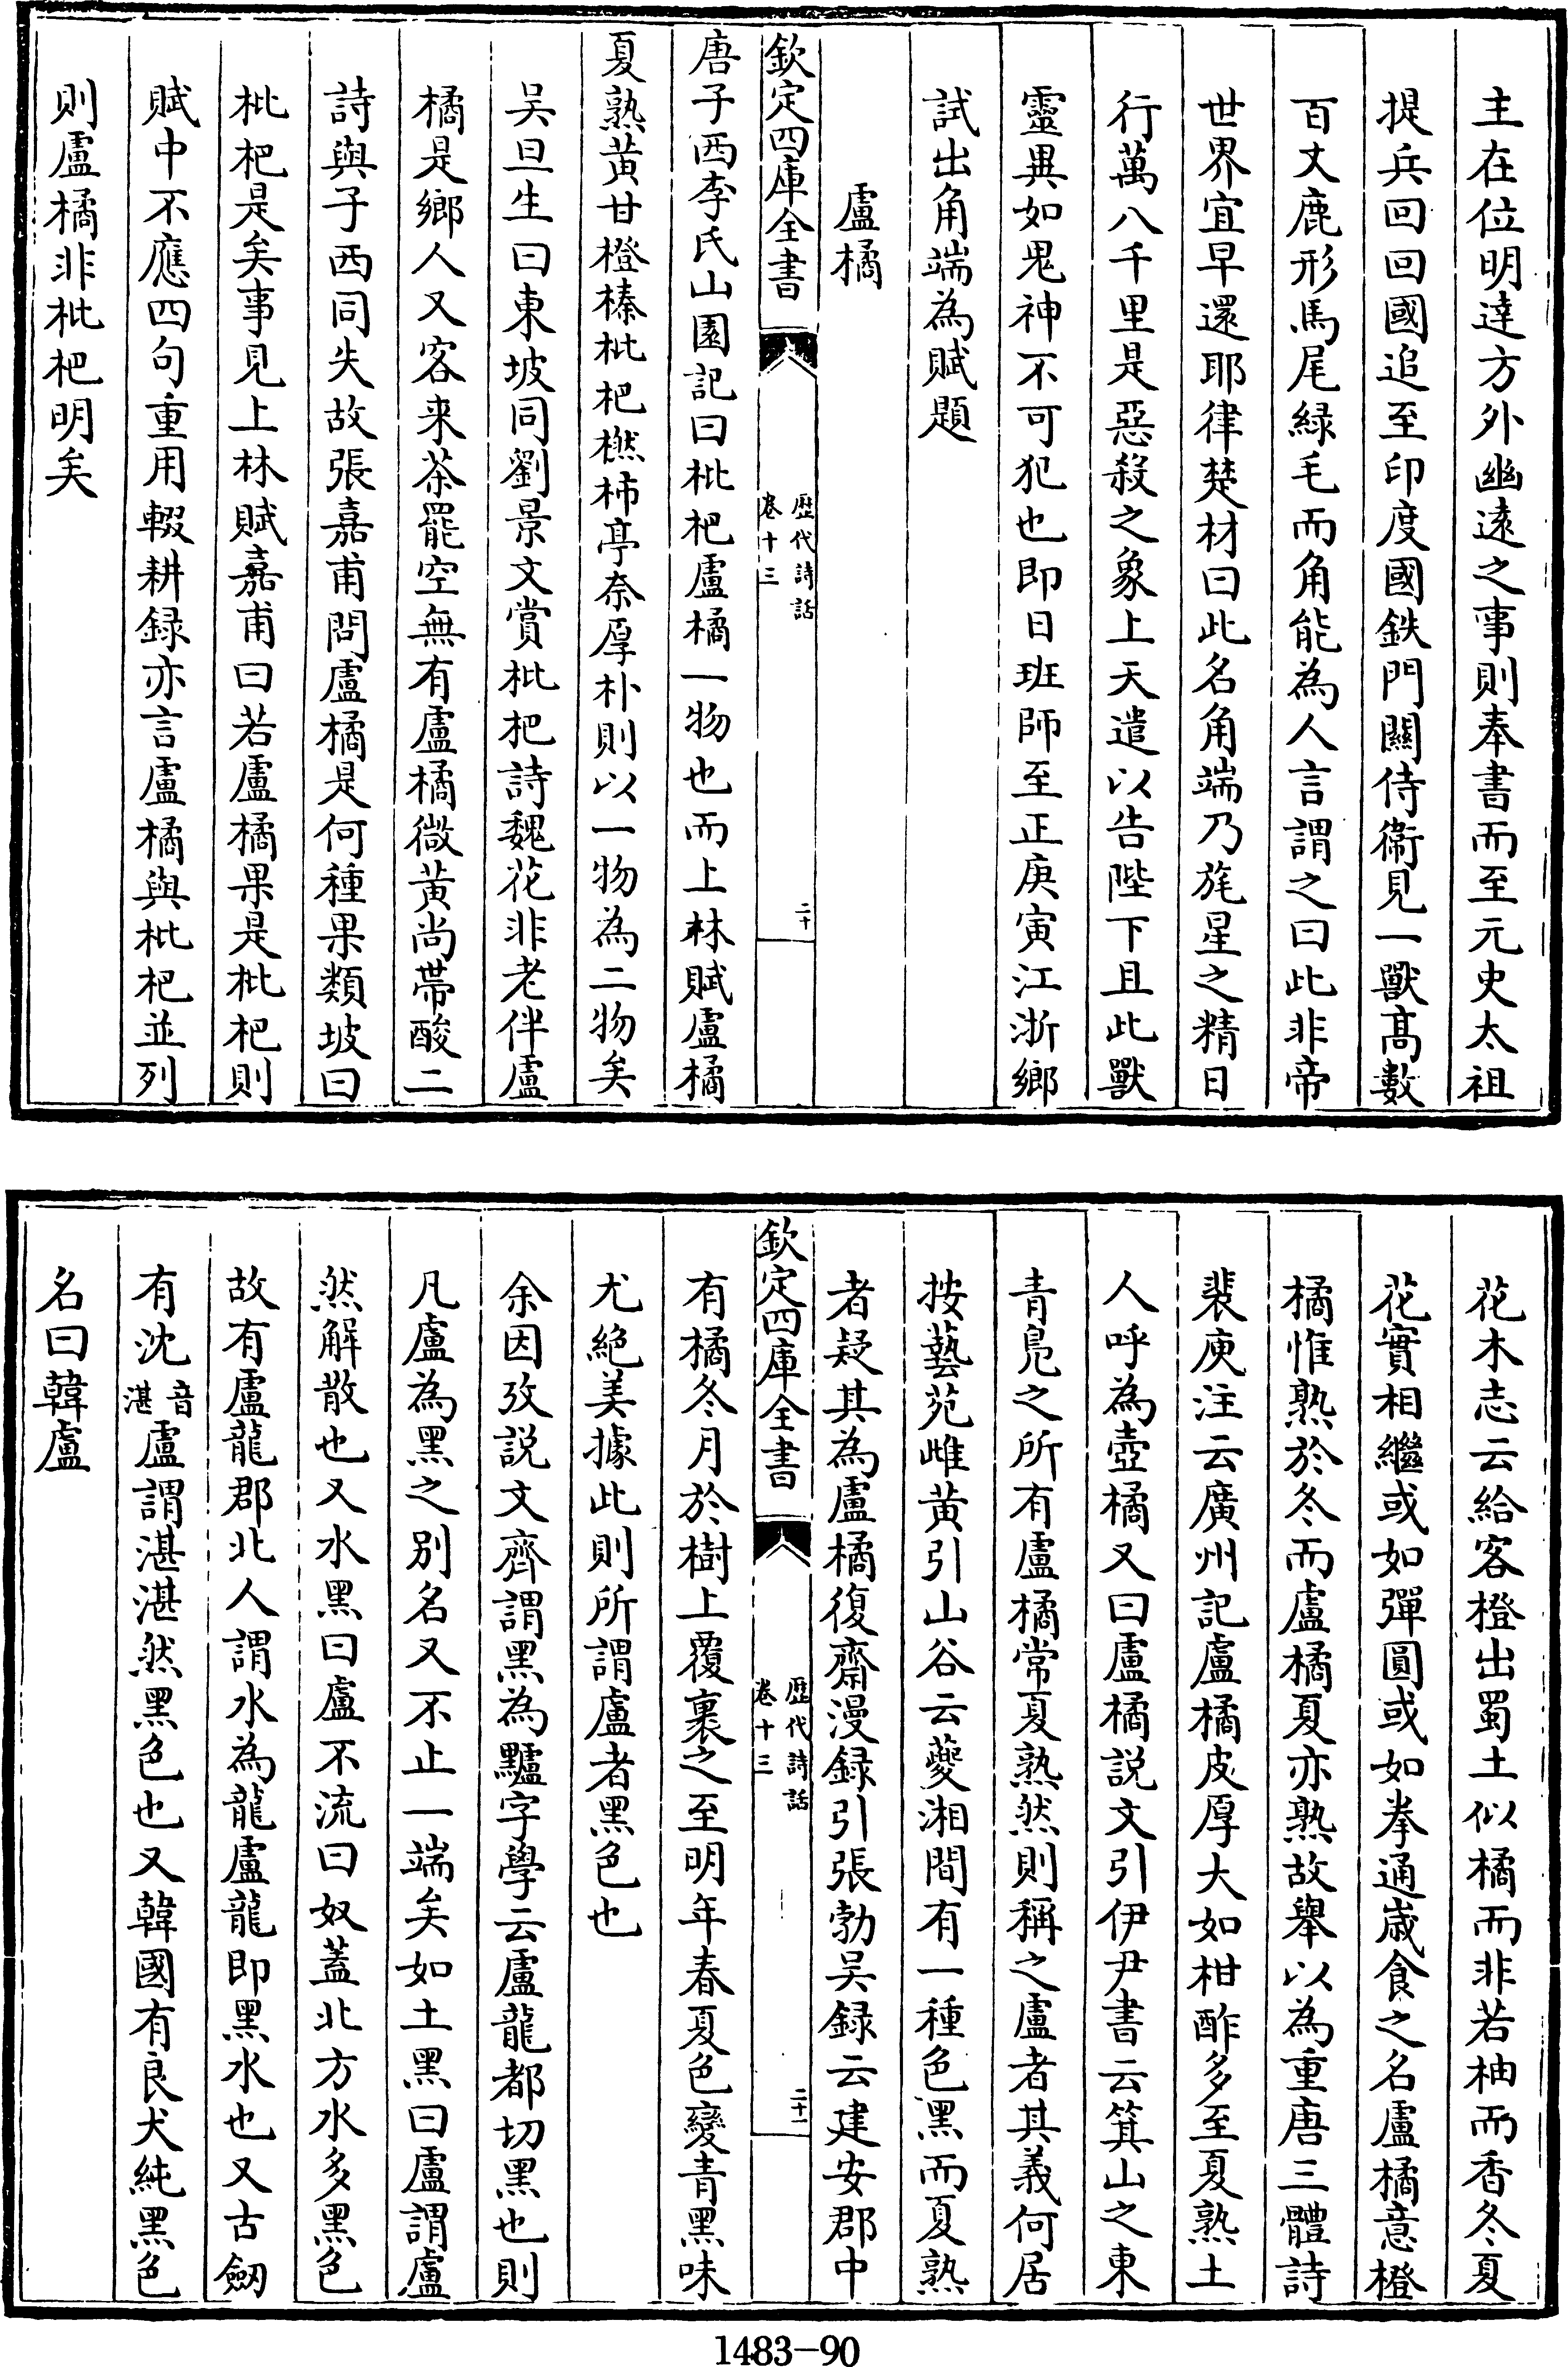 主在位明達方外幽遠之事則奉書而至元史太祖
提兵回回國追至印度國鉄門關侍衞見一獸髙數
百丈鹿形馬尾緑毛而角能為人言謂之曰此非帝
世界宜早還耶律楚材曰此名角端乃旄星之精日
行萬八千里是惡殺之象上天遣以告陛下且此獸
靈異如鬼神不可犯也即日班師至正庚寅江浙鄉
試出角端為賦題
盧橘
欽定四庫全書
歴代詩話
卷十三
二十
唐子西李氏山園記曰枇杷盧橘一物也而上林賦盧橘
夏熟黄甘橙榛枇杷橪柿亭奈厚朴則以一物為二物矣
吴旦生曰東坡同劉景文賞枇杷詩魏花非老伴盧
橘是鄉人又客来茶罷空無有盧橘微黄尚帶酸二
詩與子西同失故張嘉甫問盧橘是何種果類坡曰
枇杷是矣事見上林賦嘉甫曰若盧橘果是枇杷則
賦中不應四句重用輟耕録亦言盧橘與枇杷並列
則盧橘非枇杷明矣
花木志云給客橙出蜀土似橘而非若柚而香冬夏
花實相繼或如彈圓或如拳通嵗食之名盧橘意橙
橘惟熟於冬而盧橘夏亦熟故舉以為重唐三體詩
裴庾注云廣州記盧橘皮厚大如柑酢多至夏熟土
人呼為壺橘又曰盧橘説文引伊尹書云箕山之東
青鳧之所有盧橘常夏熟然則稱之盧者其義何居
按藝苑雌黄引山谷云夔湘間有一種色黑而夏熟
者疑其為盧橘復齋漫録引張勃吴録云建安郡中
欽定四庫全書
歴代詩話
卷十三
二十一
有橘冬月於樹上覆裹之至明年春夏色變青黑味
尤絶美據此則所謂盧者黑色也
余因攷説文齊謂黑為驢字學云盧龍都切黑也則
凡盧為黑之别名又不止一端矣如土黑曰盧謂盧
然解散也又水黑曰盧不流曰奴蓋北方水多黑色
故有盧龍郡北人謂水為龍盧龍即黑水也又古劒
有沈音湛盧謂湛湛然黑色也又韓國有良犬純黑色
名曰韓盧
1483-90